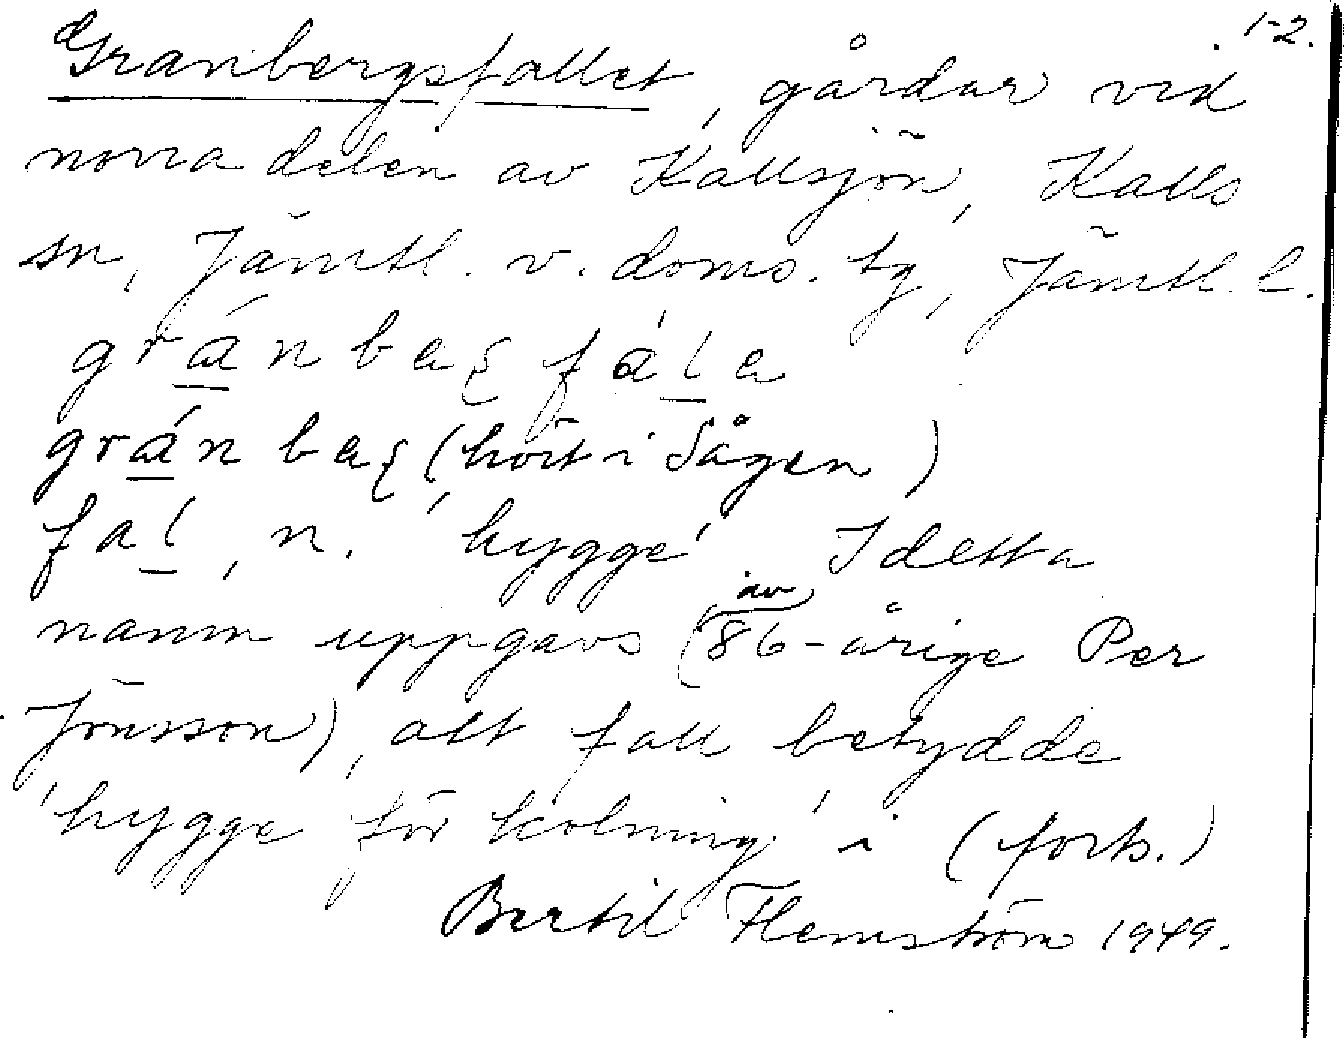 1-2.
Granbergsfallet, gårdar vid
norra delen av Kallsjön, Kalls
sn, Jämtl. v. doms. tg, Jämtl. l.
gránbaʂfála
gránbaʂ (hört i Sågen)
fal, n. 'hygge' I detta
namn uppgavs (av 86-årige Per
Jönsson), att fall betydde
'hygge för kolning' i (forts.)
Bertil Flemström 1949.